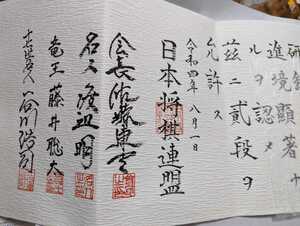 研
進境顯著ナ
ルヲ認メ
茲ニ貳段ヲ
允許ス
令和四年八月一日
日本将棋連盟
会長 佐藤康光
名人 渡辺明
竜王 藤井聡太
十七世名人 谷川浩司